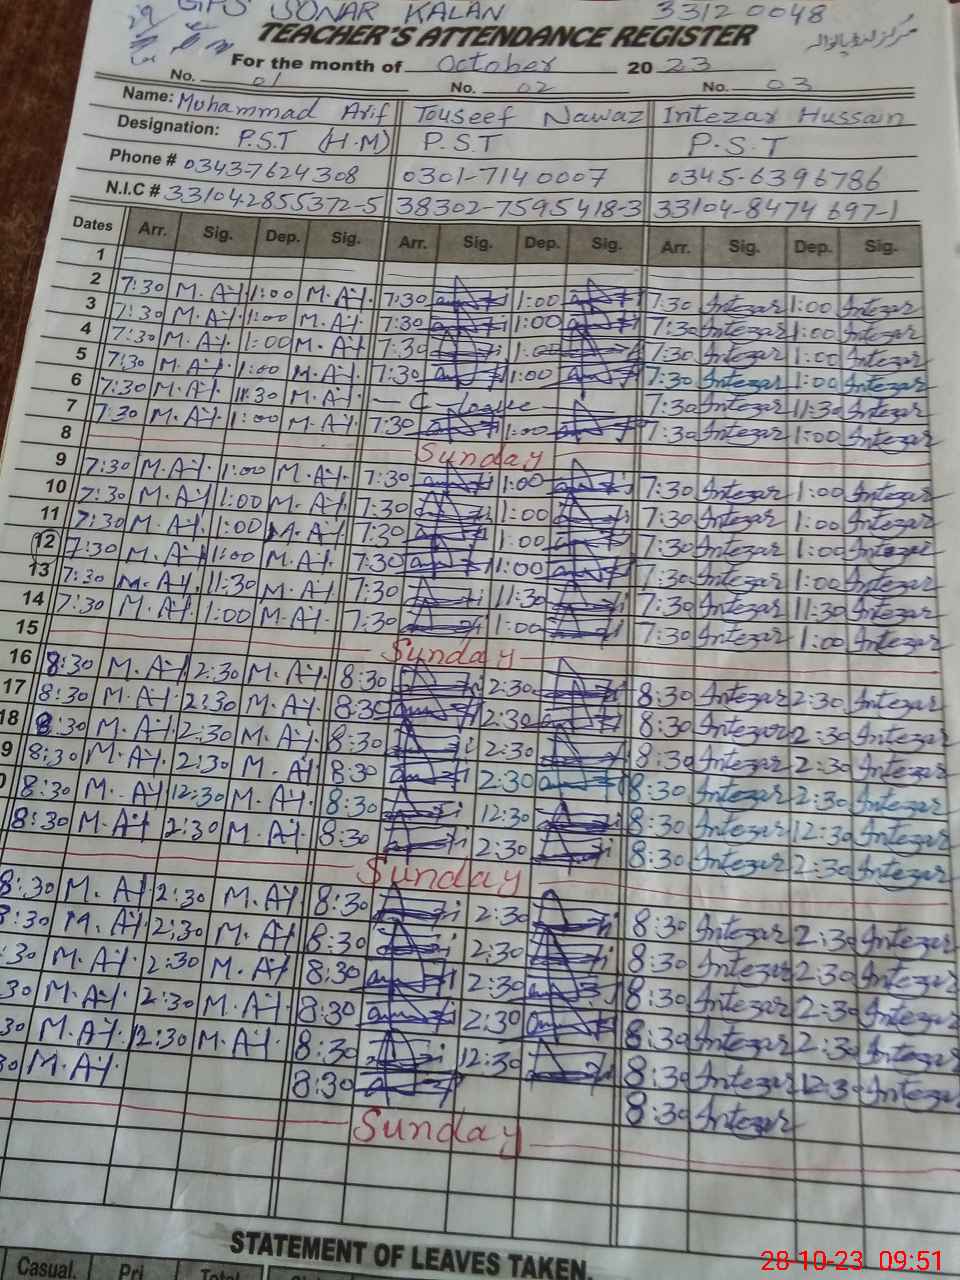 GPS SONAR KALAN 33120048
TEACHER'S ATTENDANCE REGISTER
For the month of October 2023
No. 01 No. 02 No. 03
Name: Muhammad Arif Touseef Nawaz Intezar Hussain
Designation: P.S.T (H.M) P.S.T P.S.T
Phone # 0343-7624308 0301-7140007 0345-6396786
N.I.C # 331042855372-5 38302-7595418-3 33104-8474697-1
Dates Arr. Sig. Dep. Sig. Arr. Sig. Dep. Sig. Arr. Sig. Dep. Sig.
1
2 7:30 M.Af 1:00 M.Af 7:30 1:00 7:30 Intezar 1:00 Intezar
3 7:30 M.Af 1:00 M.Af 7:30 1:00 7:30 Intezar 1:00 Intezar
4 7:30 M.Af 1:00 M.Af 7:30 1:00 7:30 Intezar 1:00 Intezar
5 7:30 M.Af 1:00 M.Af 7:30 1:00 7:30 Intezar 1:00 Intezar
6 7:30 M.Af 11:30 M.Af 7:30 Intezar 11:30 Intezar
7 7:30 M.Af 1:00 M.Af 7:30 1:00 7:30 Intezar 1:00 Intezar
8 Sunday
9 7:30 M.Af 1:00 M.Af 7:30 1:00 7:30 Intezar 1:00 Intezar
10 7:30 M.Af 1:00 M.Af 7:30 1:00 7:30 Intezar 1:00 Intezar
11 7:30 M.Af 1:00 M.Af 7:30 1:00 7:30 Intezar 1:00 Intezar
12 7:30 M.Af 1:00 M.Af 7:30 1:00 7:30 Intezar 1:00 Intezar
13 7:30 M.Af 11:30 M.Af 7:30 11:30 7:30 Intezar 11:30 Intezar
14 7:30 M.Af 1:00 M.Af 7:30 1:00 7:30 Intezar 1:00 Intezar
15 Sunday
16 8:30 M.Af 2:30 M.Af 8:30 2:30 8:30 Intezar 2:30 Intezar
17 8:30 M.Af 2:30 M.Af 8:30 2:30 8:30 Intezar 2:30 Intezar
18 8:30 M.Af 2:30 M.Af 8:30 2:30 8:30 Intezar 2:30 Intezar
9 8:30 M.Af 2:30 M.Af 8:30 2:30 8:30 Intezar 2:30 Intezar
0 8:30 M.Af 12:30 M.Af 8:30 12:30 8:30 Intezar 12:30 Intezar
8:30 M.Af 2:30 M.Af 8:30 2:30 8:30 Intezar 2:30 Intezar
Sunday
8:30 M.Af 2:30 M.Af 8:30 2:30 8:30 Intezar 2:30 Intezar
8:30 M.Af 2:30 M.Af 8:30 2:30 8:30 Intezar 2:30 Intezar
:30 M.Af 2:30 M.Af 8:30 2:30 8:30 Intezar 2:30 Intezar
30 M.Af 2:30 M.Af 8:30 2:30 8:30 Intezar 2:30 Intezar
30 M.Af 12:30 M.Af 8:30 12:30 8:30 Intezar 12:30 Intezar
30 M.Af 8:30 8:30 Intezar
Sunday
STATEMENT OF LEAVES TAKEN.
Casual. Pri Total
28-10-23 09:51